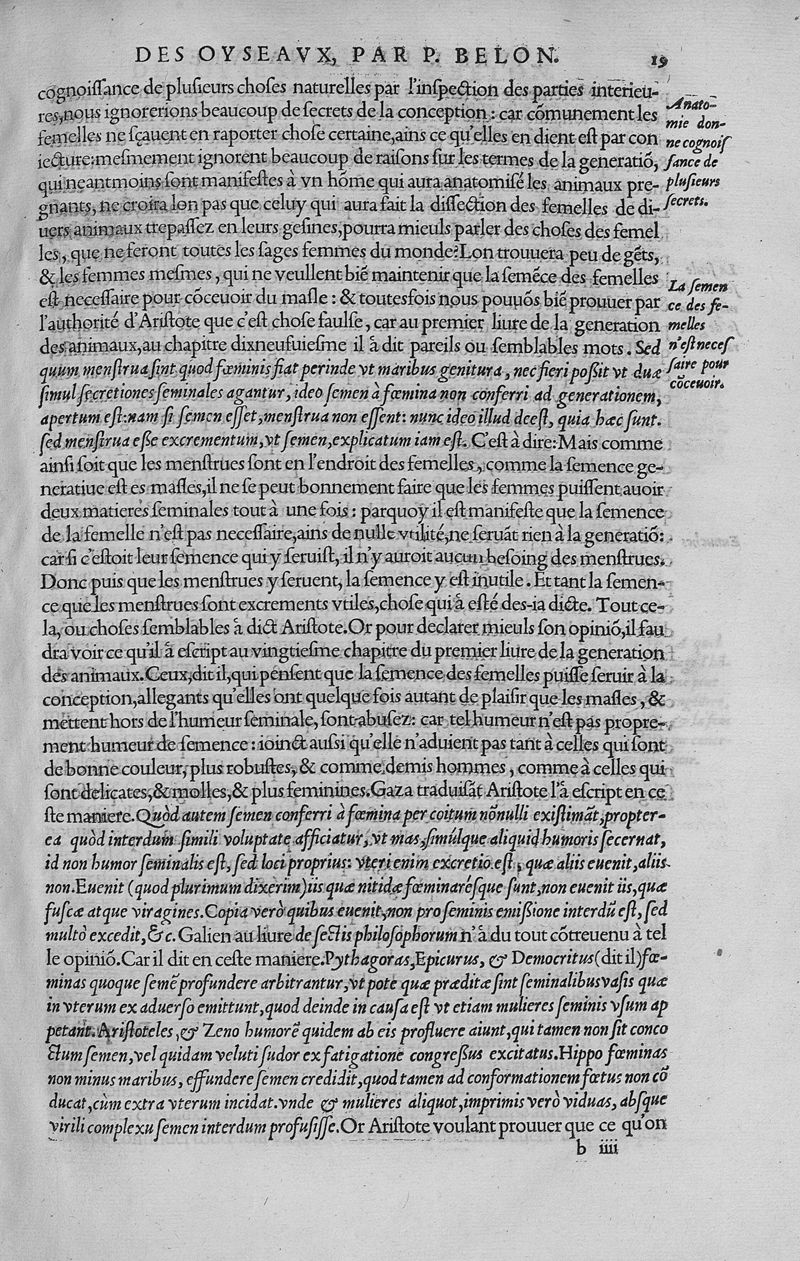 DES OYSEAVX, PAR P. BELON. 19
cognoiſſance de pluſieurs choſes naturelles par l'inſpection des parties interieu-
res, nous ignorerions beaucoup de ſecrets de la conception : car cõmunement les
femelles ne ſçauent en raporter choſe certaine, ains ce qu'elles en dient eſt par con
iecture: meſmement ignorent beaucoup de raiſons ſur les termes de la generatiõ,
qui neantmoins ſont manifeſtes à vn hõme qui aura anatomiſé les animaux pre-
gnants, ne croira lon pas que celuy qui aura fait la diſſection des femelles de di-
uers animaux treſpaſſez en leurs geſines, pourra mieuls parler des choſes des femel
les, que ne feront toutes les ſages femmes du monde? Lon trouuera peu de gẽts,
& les femmes meſmes, qui ne veullent biẽ maintenir que la ſemẽce des femelles
eſt neceſſaire pour cõceuoir du maſle : & toutesfois nous pouuõs biẽ prouuer par
l'authorité d'Ariſtote que c'eſt choſe faulſe, car au premier liure de la generation
des animaux, au chapitre dixneufuieſme il à dit pareils ou ſemblables mots. Sed
quum menſtrua ſint quod fœminis fiat perinde vt maribus genitura, nec fieri poßit vt duæ
ſimul ſecretiones ſeminales agantur, ideo ſemen à fœmina non conferri ad generationem,
apertum eſt: nam ſi ſemen eſſet, menſtrua non eſſent: nunc ideo illud deeſt, quia hæc ſunt.
ſed menſtrua eße excrementum, vt ſemen, explicatum iam eſt. C'eſt à dire: Mais comme
ainſi ſoit que les menſtrues ſont en l'endroit des femelles, comme la ſemence ge-
neratiue eſt es maſles, il ne ſe peut bonnement faire que les femmes puiſſent auoir
deux matieres ſeminales tout à vne fois : parquoy il eſt manifeſte que la ſemence
de la femelle n'eſt pas neceſſaire, ains de nulle vtilité, ne ſeruãt rien à la generatiõ:
car ſi c'eſtoit leur ſemence qui y ſeruiſt, il n'y auroit aucun beſoing des menſtrues.
Donc puis que les menſtrues y ſeruent, la ſemence y eſt inutile. Et tant la ſemen-
ce que les menſtrues ſont excrements vtiles, choſe qui à eſté des-ia dicte. Tout ce-
la, ou choſes ſemblables à dict Ariſtote. Or pour declarer mieuls ſon opiniõ, il fau
dra voir ce qu'il à eſcript au vingtieſme chapitre du premier liure de la generation
des animaux. Ceux, dit il, qui penſent que la ſemence des femelles puiſſe ſeruir à la
conception, allegants qu'elles ont quelque fois autant de plaiſir que les maſles, &
mettent hors de l'humeur ſeminale, ſont abuſez: car tel humeur n'eſt pas propre-
ment humeur de ſemence : ioinct auſsi qu'elle n'aduient pas tant à celles qui ſont
de bonne couleur, plus robuſtes, & comme demis hommes, comme à celles qui
ſont delicates, & molles, & plus feminines. Gaza traduiſãt Ariſtote l'à eſcript en ce
ſte maniere. Quòd autem ſemen conferri à fœmina per coitum nõnulli exiſtimãt, propter-
ea quòd interdum ſimili voluptate afficiatur, vt mas, ſimúlque aliquid humoris ſecernat,
id non humor ſeminalis eſt, ſed loci proprius: vteri enim excretio eſt, quæ aliis euenit, aliis
non. Euenit (quod plurimum dixerim) iis quæ nitidæ fœminaréſque ſunt, non euenit iis, quæ
fuſcæ atque viragines. Copia verò quibus euenit, non pro ſeminis emißione interdũ eſt, ſed
multò excedit, &c. Galien au liure de ſectis philoſophorum n'à du tout cõtreuenu à tel
le opiniõ. Car il dit en ceſte maniere. Pythagoras, Epicurus, & Democritus (dit il) fœ-
minas quoque ſemẽ profundere arbitrantur, vt pote quæ præditæ ſint ſeminalibus vaſis quæ
in vterum ex aduerſo emittunt, quod deinde in cauſa eſt vt etiam mulieres ſeminis vſum ap
petant. Ariſtoteles, & Zeno humorẽ quidem ab eis profluere aiunt, qui tamen non ſit conco
ctum ſemen, vel quidam veluti ſudor ex fatigatione congreßus excitatus. Hippo fœminas
non minus maribus, effundere ſemen credidit, quod tamen ad conformationem fœtus non cõ
ducat, cùm extra vterum incidat. vnde & mulieres aliquot, imprimis verò viduas, abſque
virili complexu ſemen interdum profuſiſſe. Or Ariſtote voulant prouuer que ce qu'on
b iiii
Anato-
mie don-
ne cognoiſ
ſance de
pluſieurs
ſecrets.
La ſemen
ce des fe-
melles
n'eſt neceſ
ſaire pour
cõceuoir.